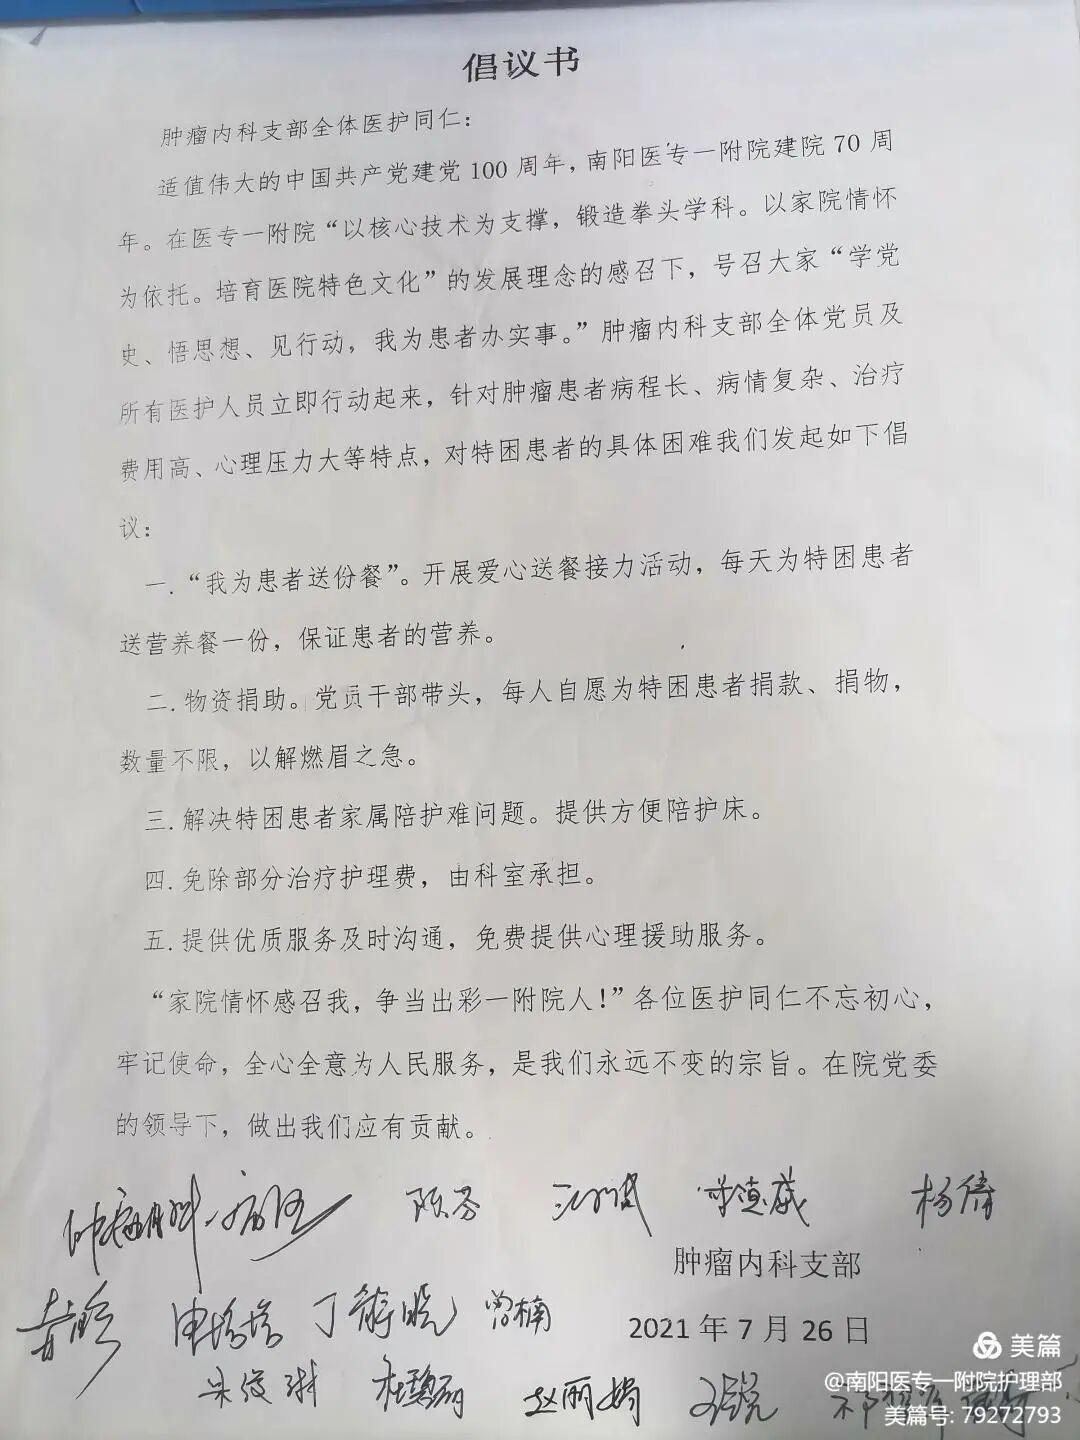 倡议书
肿瘤内科支部全体医护同仁：
适值伟大的中国共产党建党100周年，南阳医专一附院建院70周
年。在医专一附院“以核心技术为支撑，锻造拳头学科。以家院情怀
为依托。培育医院特色文化”的发展理念的感召下，号召大家“学党
史、悟思想、见行动，我为患者办实事。”肿瘤内科支部全体党员及
所有医护人员立即行动起来，针对肿瘤患者病程长、病情复杂、治疗
费用高、心理压力大等特点，对特困患者的具体困难我们发起如下倡
议：
一.“我为患者送份餐”。开展爱心送餐接力活动，每天为特困患者
送营养餐一份，保证患者的营养。
二.物资捐助。党员干部带头，每人自愿为特困患者捐款、捐物，
数量不限，以解燃眉之急。
三.解决特困患者家属陪护难问题。提供方便陪护床。
四.免除部分治疗护理费，由科室承担。
五.提供优质服务及时沟通，免费提供心理援助服务。
“家院情怀感召我，争当出彩一附院人！”各位医护同仁不忘初心，
牢记使命，全心全意为人民服务，是我们永远不变的宗旨。在院党委
的领导下，做出我们应有贡献。
陈芬 李德威 杨倩
肿瘤内科支部
申培培 丁静晓 曾楠
2021年7月26日
宋俊琳 赵丽娟
美篇
@南阳医专一附院护理部
美篇号: 79272793